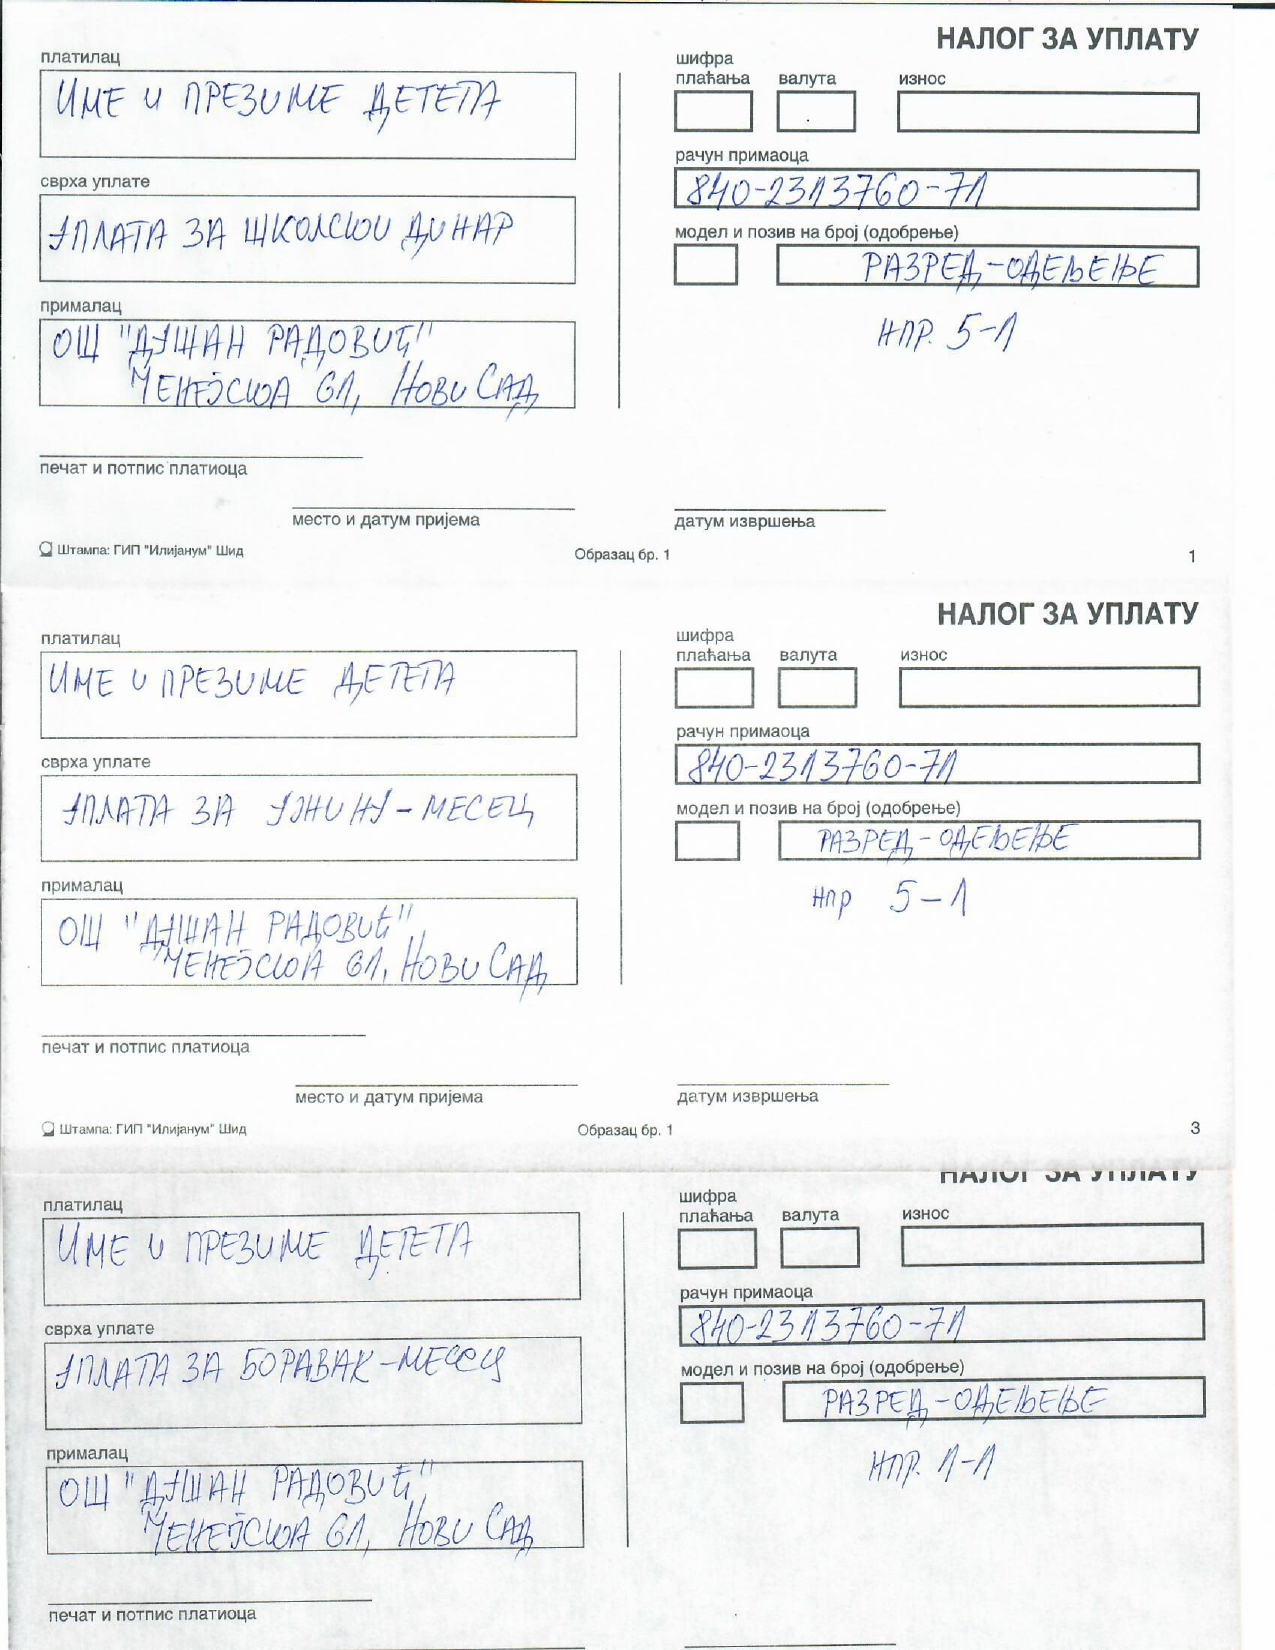 НАЛОГ ЗА УПЛАТУ
платилац
ИМЕ И ПРЕЗИМЕ ДЕТЕТА
сврха уплате
УПЛАТА ЗА ШКОЛСКИ ДИНАР
прималац
ОШ "ДУШАН РАДОВИЋ"
ЧЕНЕЈСКА 61, НОВИ САД
печат и потпис платиоца
место и датум пријема
шифра
плаћања валута износ
рачун примаоца
840-2313760-71
модел и позив на број (одобрење)
РАЗРЕД-ОДЕЉЕЊЕ
НПР. 5-1
датум извршења
Штампа: ГИП "Илијанум" Шид
Образац бр. 1
1
НАЛОГ ЗА УПЛАТУ
платилац
ИМЕ И ПРЕЗИМЕ ДЕТЕТА
сврха уплате
УПЛАТА ЗА УЖИНУ-МЕСЕЦ
прималац
ОШ "ДУШАН РАДОВИЋ",
ЧЕНЕЈСКА 61, НОВИ САД
печат и потпис платиоца
место и датум пријема
шифра
плаћања валута износ
рачун примаоца
840-2313760-71
модел и позив на број (одобрење)
РАЗРЕД-ОДЕЉЕЊЕ
НПР 5-1
датум извршења
Штампа: ГИП "Илијанум" Шид
Образац бр. 1
3
НАЛОГ ЗА УПЛАТУ
платилац
ИМЕ И ПРЕЗИМЕ ДЕТЕТА
сврха уплате
УПЛАТА ЗА БОРАВАК-МЕСЕЦ
прималац
ОШ "ДУШАН РАДОВИЋ",
ЧЕНЕЈСКА 61, НОВИ САД
печат и потпис платиоца
шифра
плаћања валута износ
рачун примаоца
840-2313760-71
модел и позив на број (одобрење)
РАЗРЕД-ОДЕЉЕЊЕ
НПР. 1-1